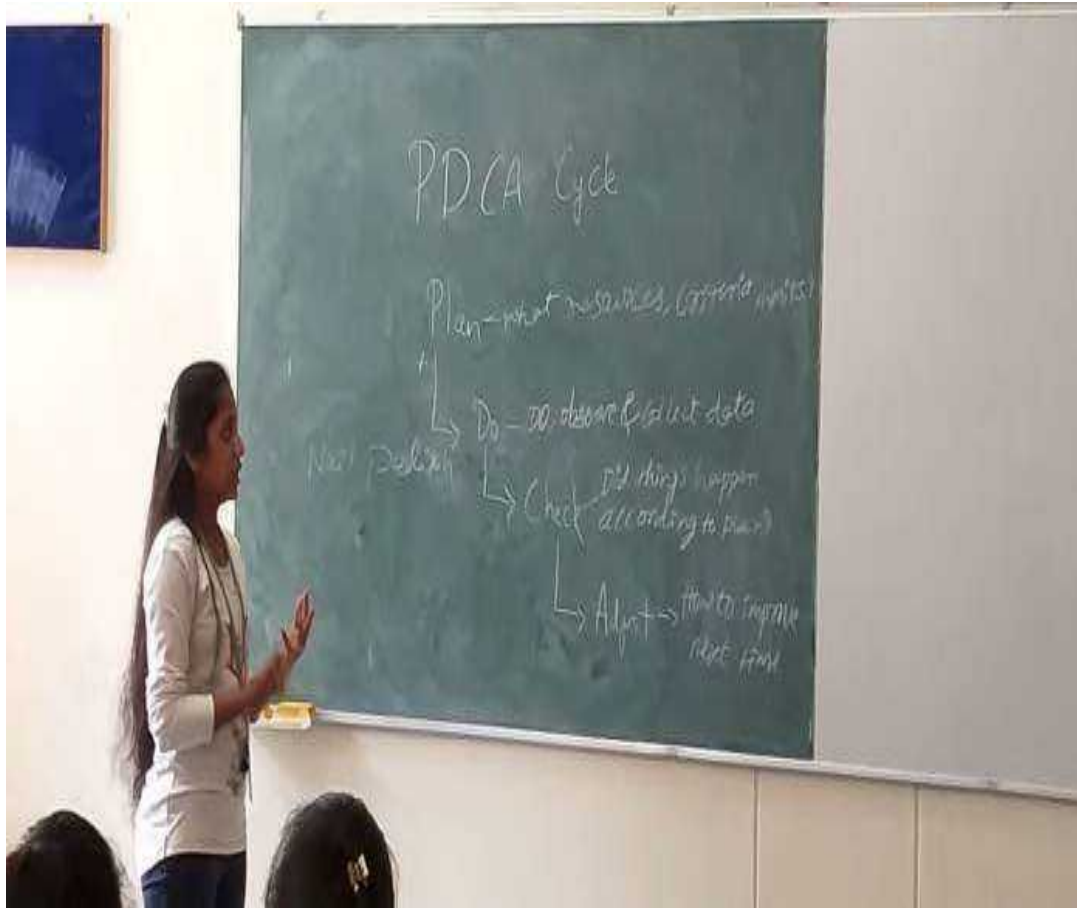 PDCA Cycle
Plan - what resources, criteria
Do - DO, observe & collect data
Check Did things happen
according to plan?
Adjust → How to improve
next time